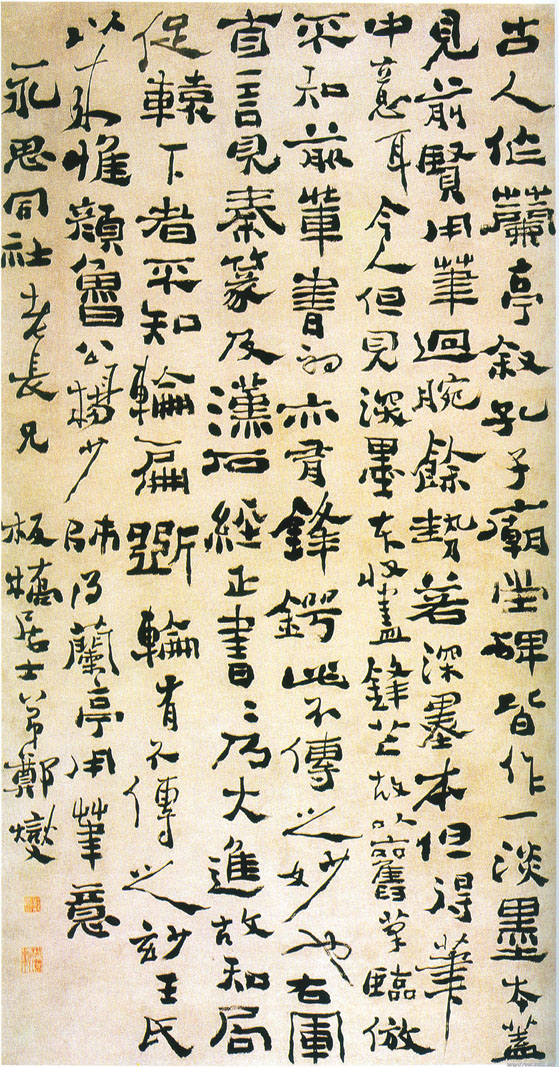 古人作蘭亭敘孔子廟堂碑皆作一淡墨本蓋
見前賢用筆迴腕餘勢若深墨本但得筆
中意耳今人但見深墨本收盡鋒芒故以舊筆臨倣
不知前輩書初亦有鋒鍔此不傳之妙也右軍
自言見秦篆及漢石經正書〻乃大進故知局
促轅下者不知輪扁斲輪有不傳之妙王氏
以來惟顏魯公楊少師得蘭亭用筆意
永思同社老長兄 板橋居士弟鄭燮